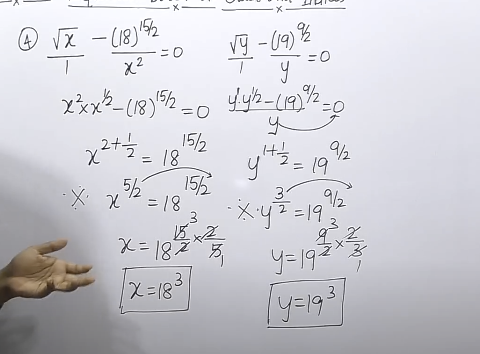 ④ √x/1 − (18)^15/2 / x² = 0
x² × x^1/2 − (18)^15/2 = 0
x^2+1/2 = 18^15/2
∴ x^5/2 = 18^15/2
x = 18^15/2 × 2/5 3 1
x = 18³
√y/1 − (19)^9/2 / y = 0
y¹·y^1/2 − (19)^9/2 / y = 0
y^1+1/2 = 19^9/2
y^3/2 = 19^9/2
y = 19^9/2 × 2/3 3 1
y = 19³